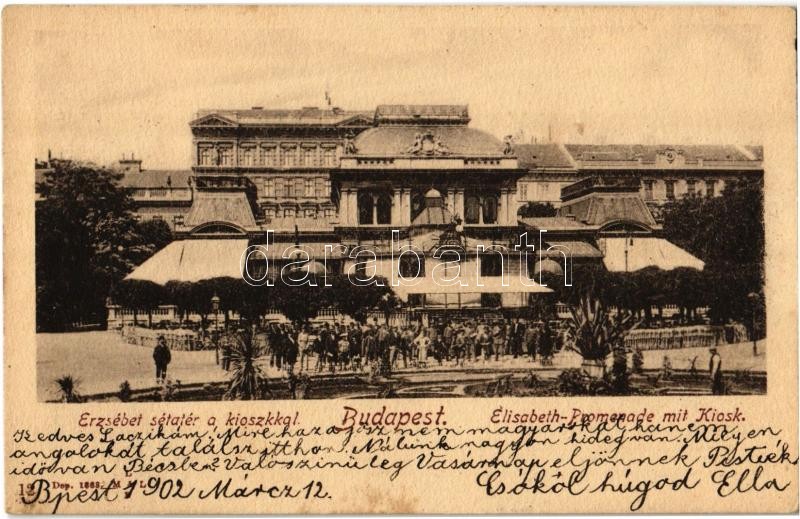 darabanth
Erzsébet sétatér a kioszkkal. Budapest. Elisabeth-Promenade mit Kiosk.
Kedves Laczikám, Mire haza jösz nem magyarokat hanem
angolokat találsz itthon. Nálunk nagyon hideg van. Milyen
idő van Bécsben? Valoszinüleg Vasárnap eljönnek Pestiek
Csókol húgod Ella
Bpest 1902 Márcz 12.